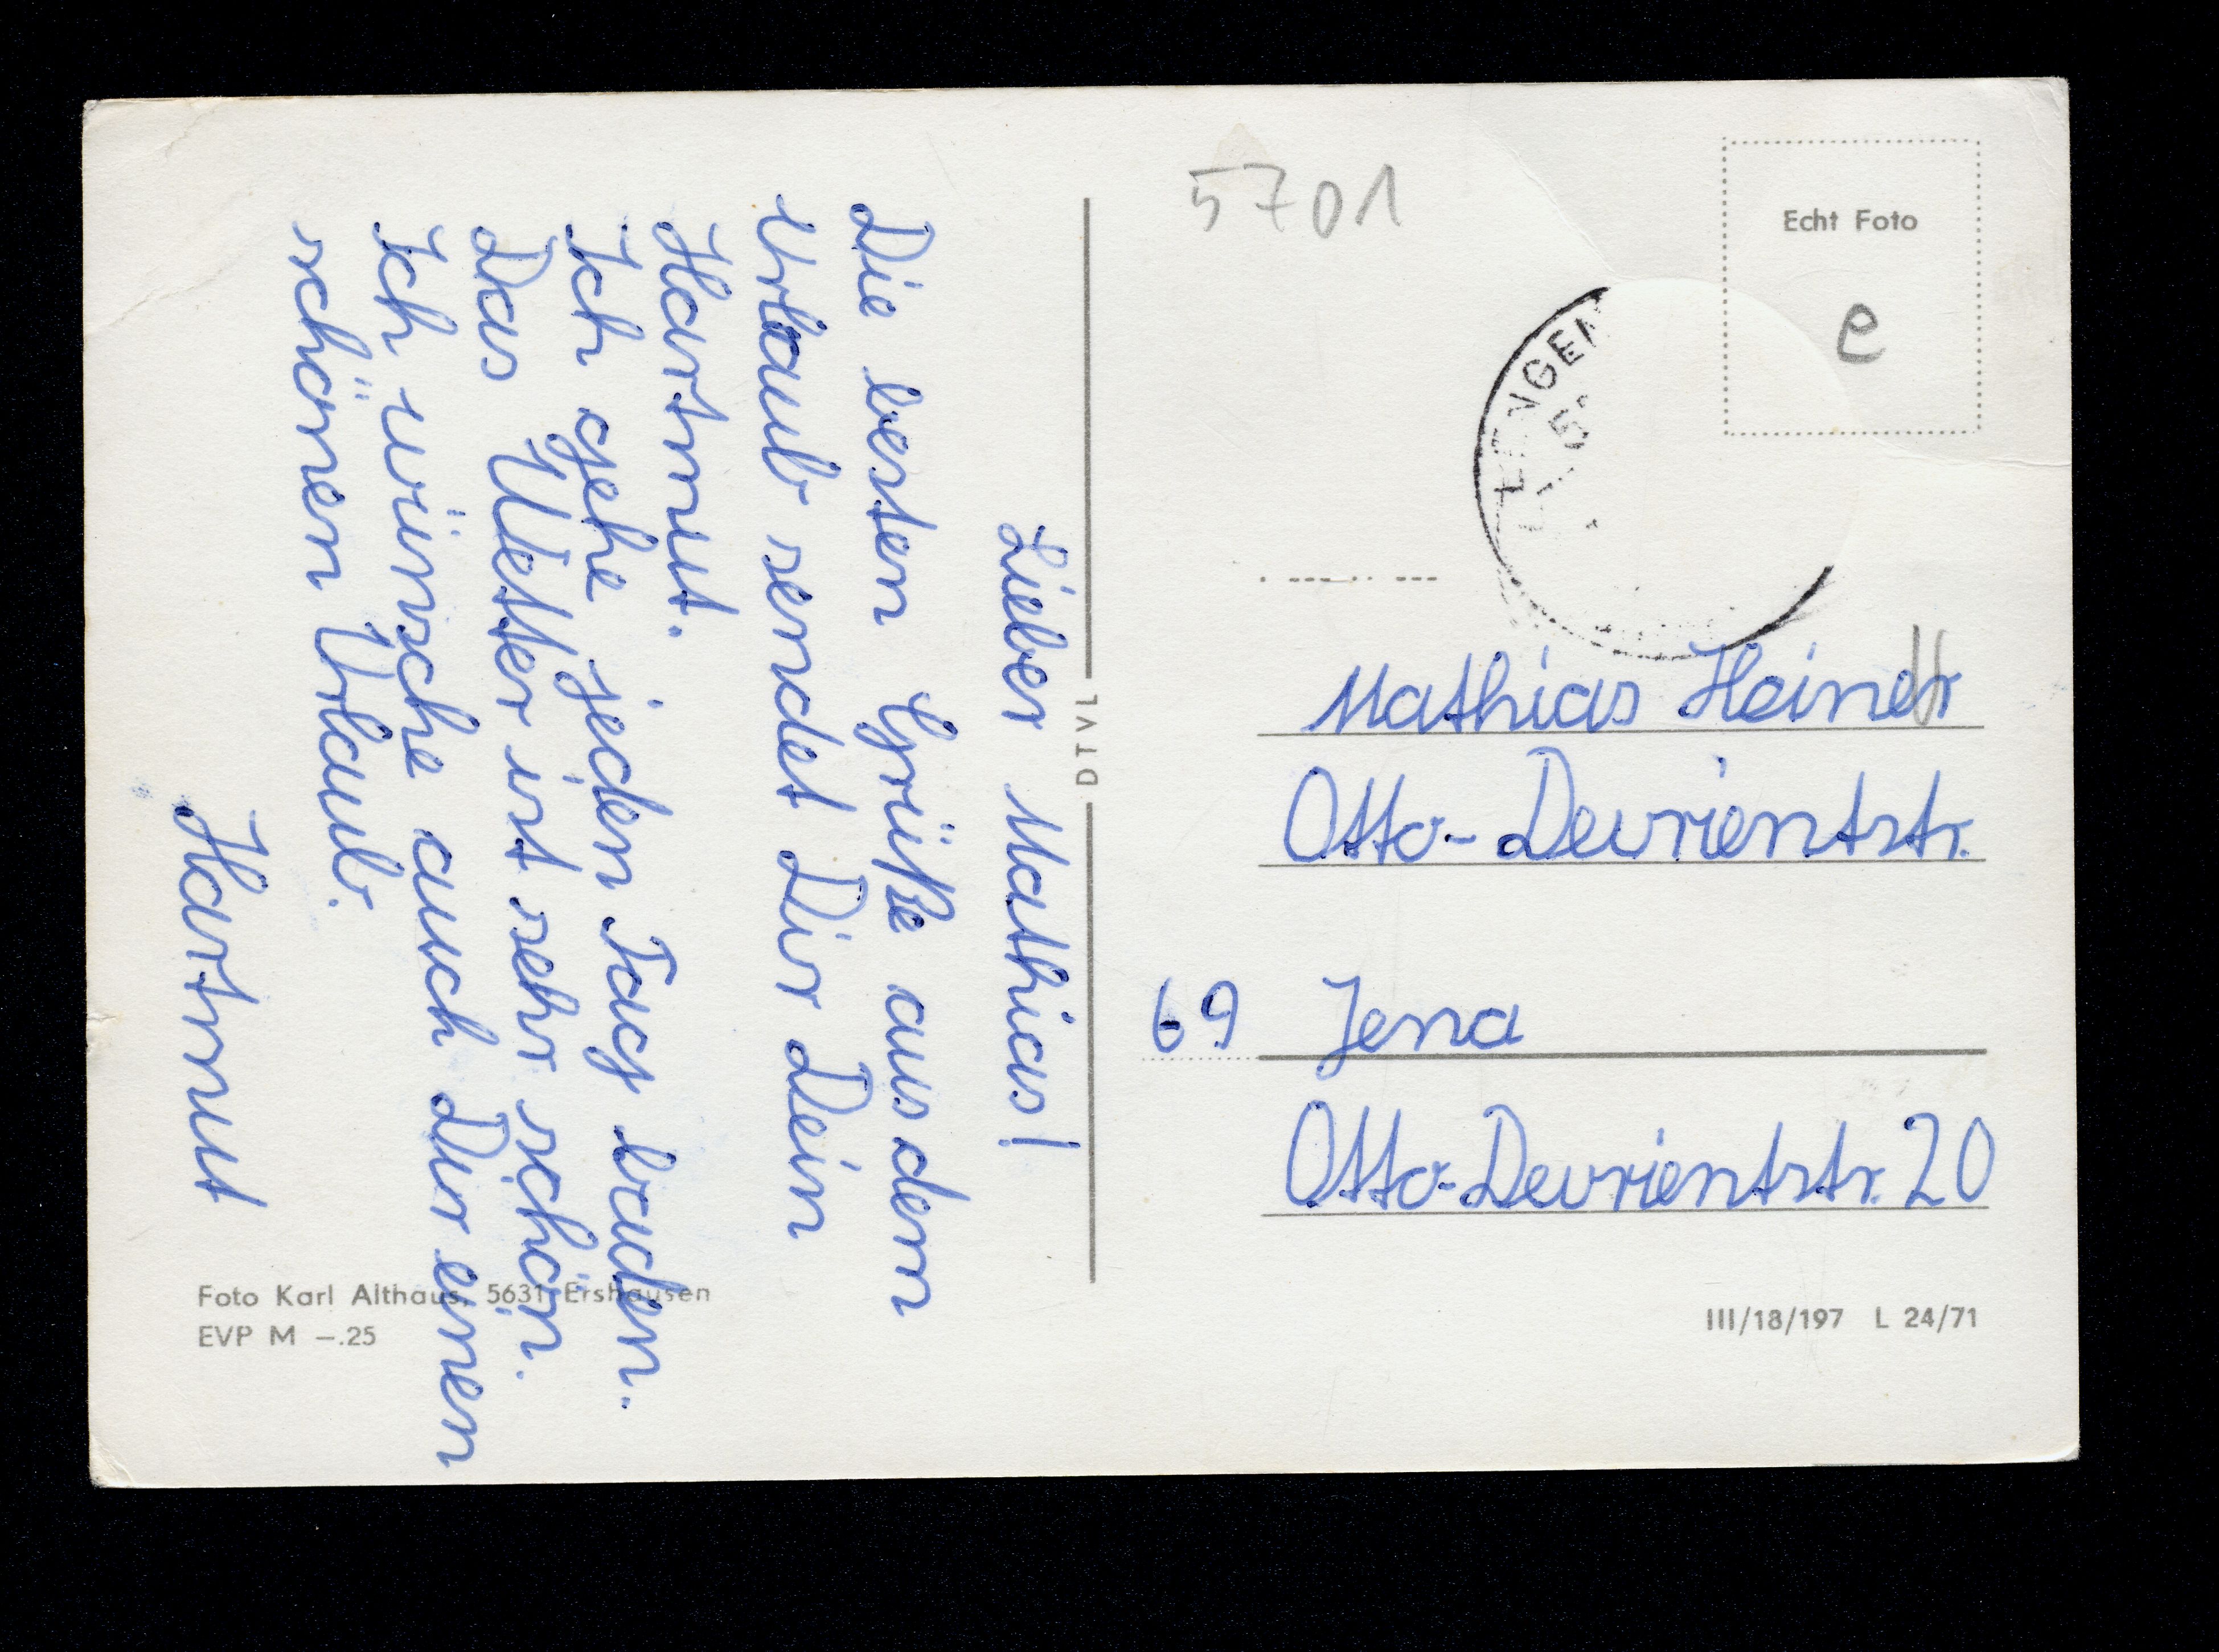 Lieber Mathias!
Die besten Grüße aus dem
Urlaub sendet Dir Dein
Hartmut.
Ich gehe jeden Tag baden.
Das Wetter ist sehr schön.
Ich wünsche auch Dir einen
schönen Urlaub.
Hartmut
Foto Karl Althaus, 5631 Ershausen
EVP M –.25
DTVL
5701
Echt Foto
e
Mathias
Otto-Devrientstr.
69 Jena
Otto-Devrientstr. 20
III/18/197 L 24/71